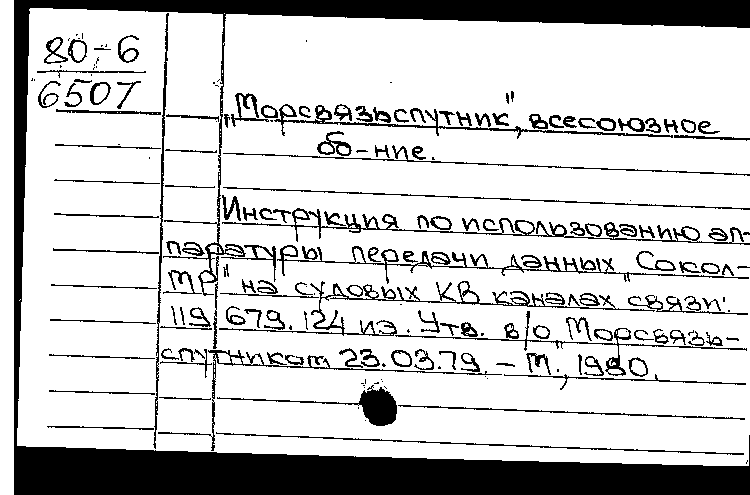 80-6
6507
„Морсвязьспутник", всесоюзное
об-ние.
Инструкция по использованию ап-
паратуры передачи данных „Сокол-
МР" на судовых КВ каналах связи.
119.679.124 иэ. Утв. в/о „Морсвязь-
спутником 23.03.79. - М., 1980.